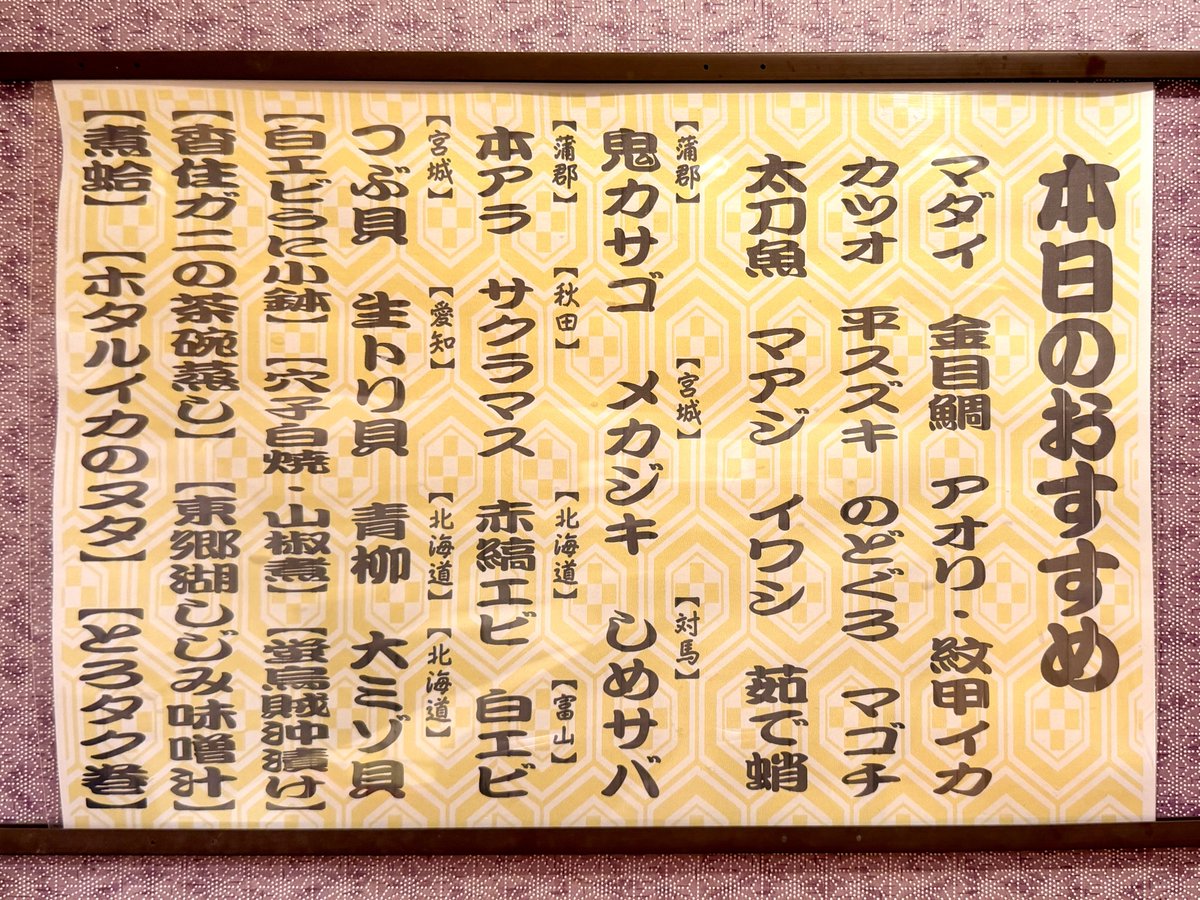 本日のおすすめ
マダイ 金目鯛 アオリ・紋甲イカ
カツオ 平スズキ のどぐろ マゴチ
太刀魚 マアジ イワシ 茹で蛸
【蒲郡】 【宮城】 【対馬】
鬼カサゴ メカジキ しめサバ
【蒲郡】 【秋田】 【北海道】 【富山】
本アラ サクラマス 赤縞エビ 白エビ
【宮城】 【愛知】 【北海道】 【北海道】
つぶ貝 生トリ貝 青柳 大ミゾ貝
【白エビうに小鉢】 【穴子白焼・山椒煮】 【蛍烏賊沖漬け】
【香住ガニの茶碗蒸し】 【東郷湖しじみ味噌汁】
【煮蛤】 【ホタルイカのヌタ】 【とろタク巻】